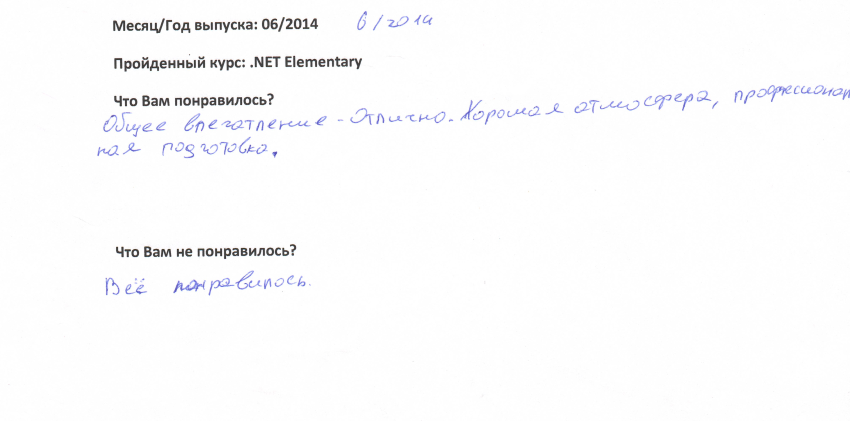 Месяц/Год выпуска: 06/2014 6/2014
Пройденный курс: .NET Elementary
Что Вам понравилось?
Общее впечатление - Отлично. Хорошая атмосфера, профессионал
ная подготовка.
Что Вам не понравилось?
Всё понравилось.